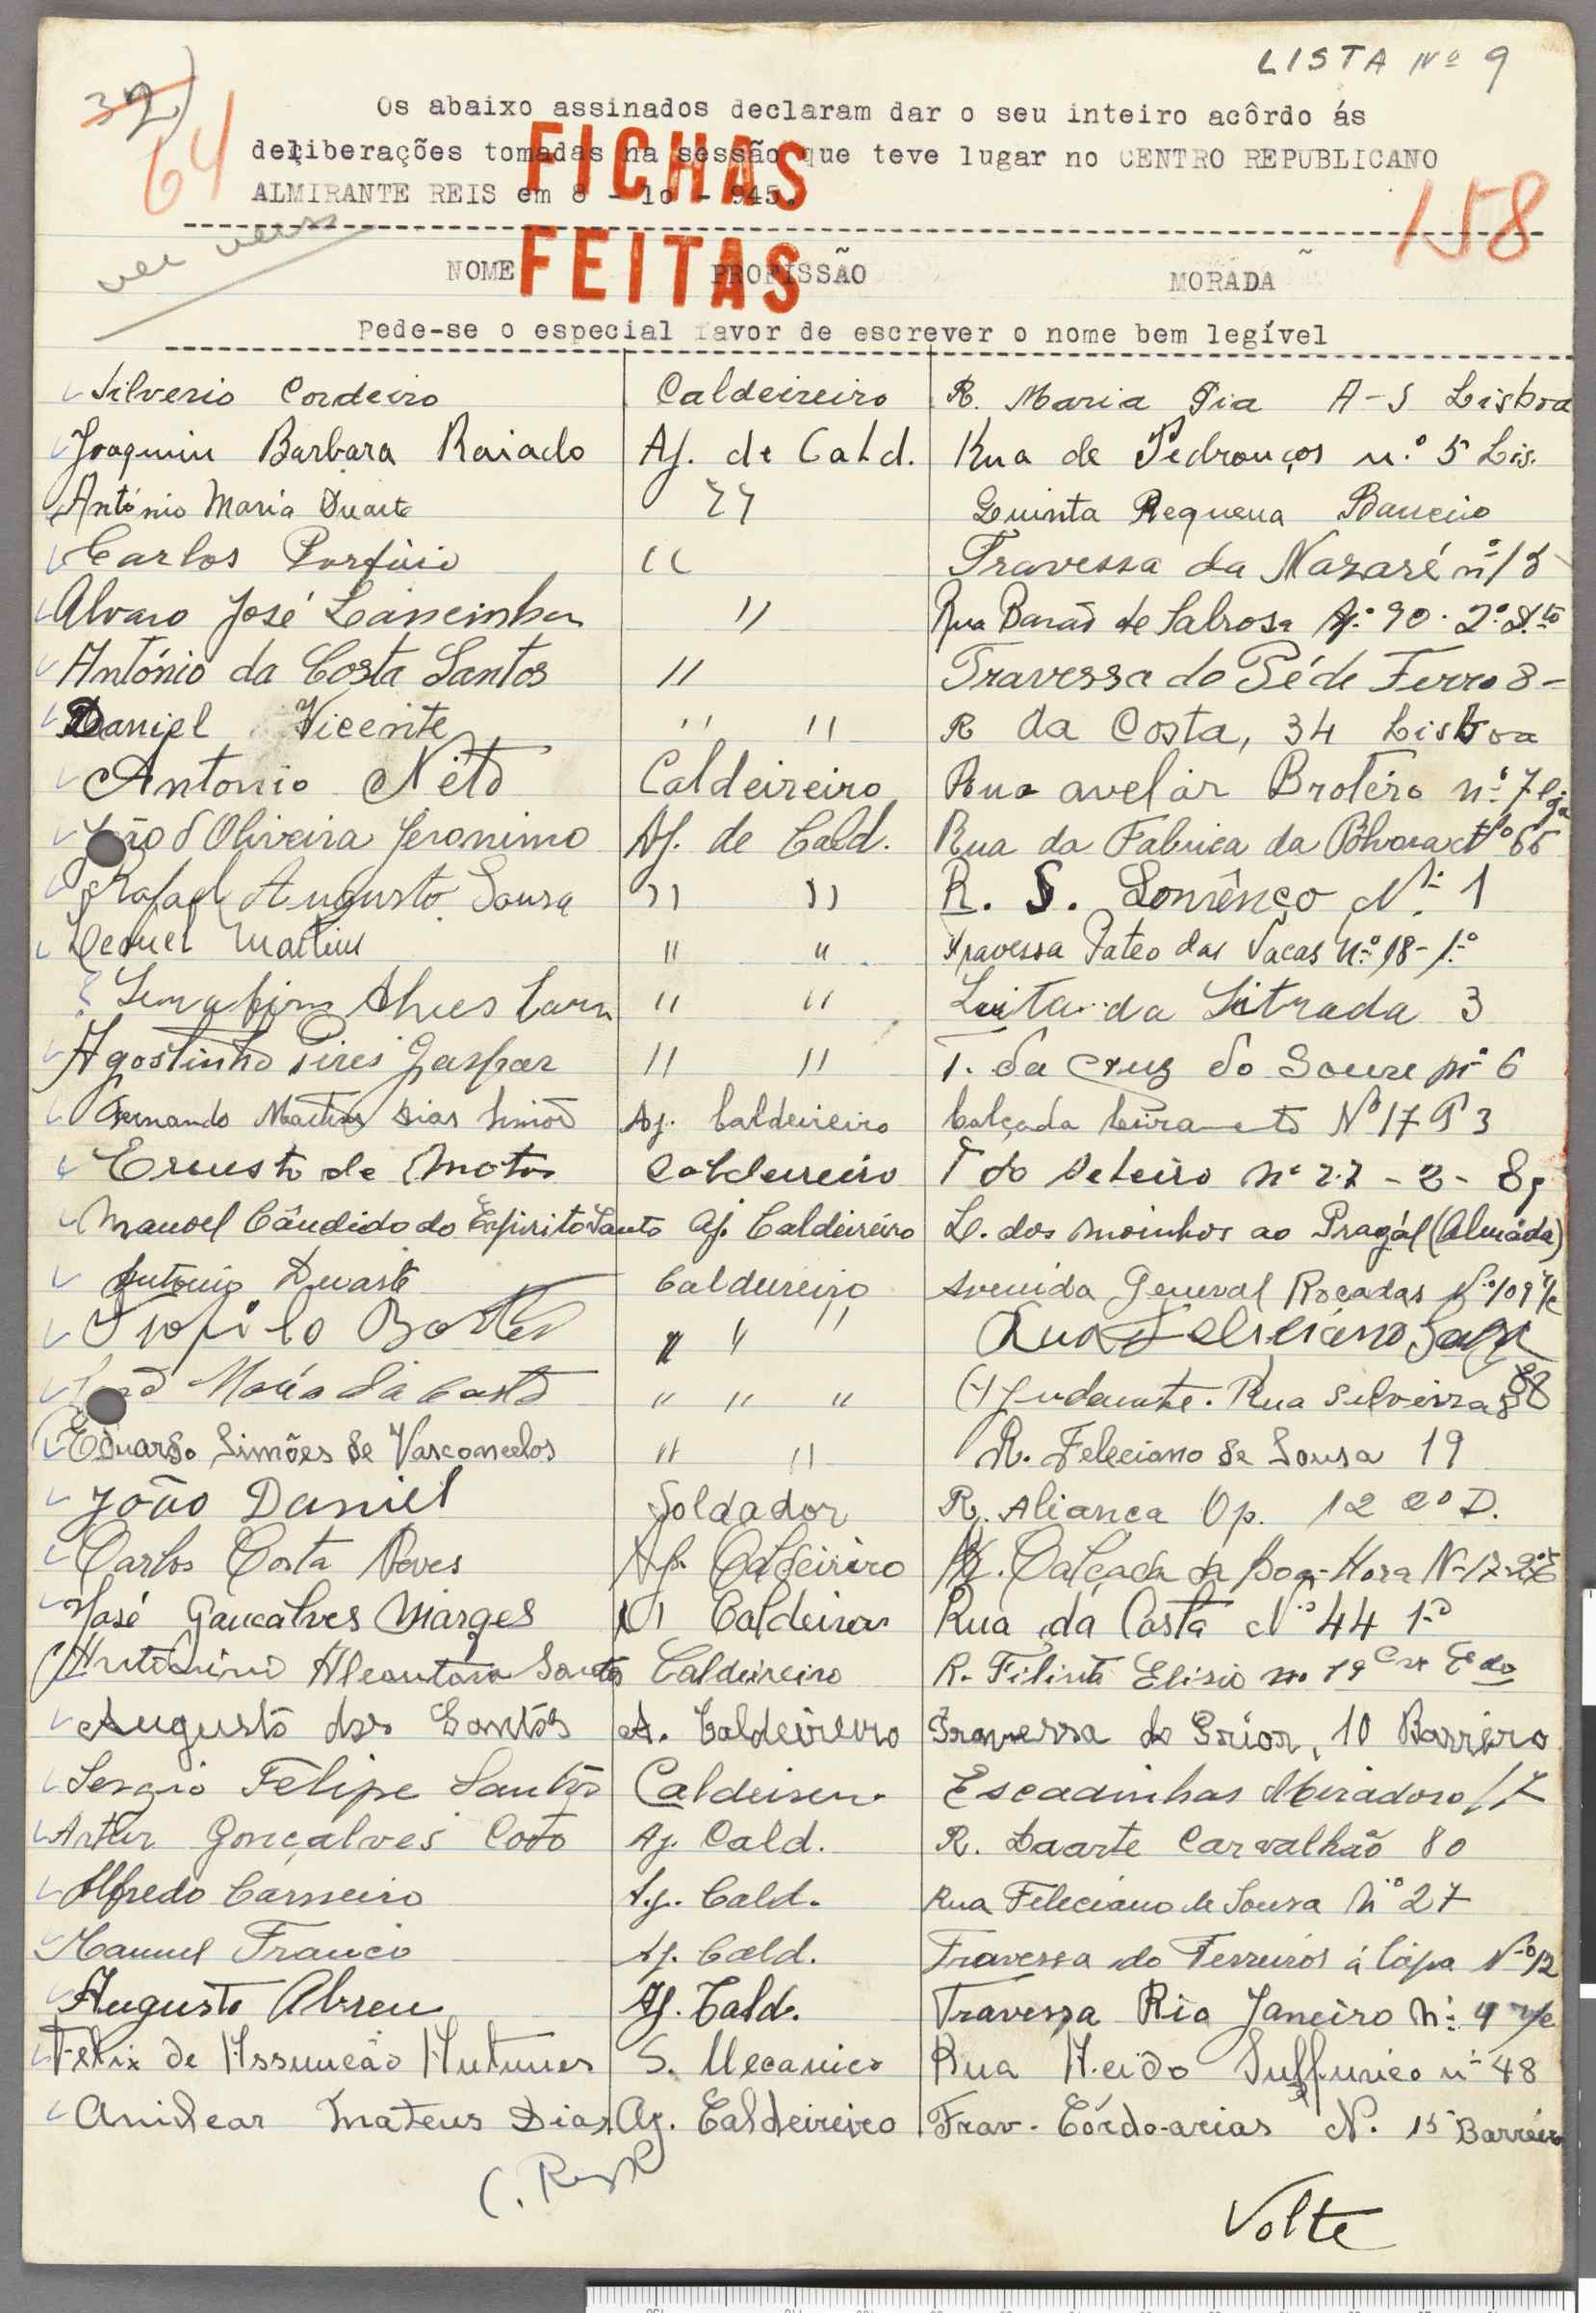 LISTA Nº 9
32)
64
Os abaixo assinados declaram dar o seu inteiro acôrdo ás
deliberações tomadas na sessão que teve lugar no CENTRO REPUBLICANO
ALMIRANTE REIS em 8 - 1o - 945.
FICHAS
FEITAS
158
ver verso
NOME PROFISSÃO MORADA
Pede-se o especial favor de escrever o nome bem legível
Silverio Cordeiro Caldeireiro R. Maria Pia A-S Lisboa
Joaquim Barbara Raiado Aj. de Cald. Rua de Pedrouços n.º 5 Lis.
António Maria Duarte " Quinta Pequena
Carlos Porfirio " Travessa da Nazaré nº
Alvaro José " Rua Barão de Sabrosa Nº 90. 2º D.to
António da Costa Santos " Travessa do Pé de Ferro 8-
Daniel Vicente " " R da Costa, 34 Lisboa
Antonio Neto Caldeireiro Rua avelar Brotéro n.º 7 lja
João d'Oliveira Jeronimo Aj. de Cald. Rua da Fabrica da Pólvora Nº 66
Rafael Augusto Sousa " " R. S. Lourênço Nº 1
Martins " " Travessa Pateo das Vacas n.º 18-1.º
Serafim Alves " " da 3
Agostinho Pires Gaspar " " T. da Cruz do Soure nº 6
Fernando Martins Dias Simõe Aj. Caldeireiro Calçada Livramento Nº 17 P 3
Ernesto de Matos Caldeireiro T do Outeiro nº 22 - 2 -
Manoel Cândido do Espirito Santo Aj. Caldeireiro L. dos Moinhos ao Pragál (Almáda)
Antonio Duarte Caldeireiro Avenida General Roçadas N.º 109 r/c
Teofilo " " " Rua Feliciano
João Maria da Costa " " " Ajudante. Rua Silveira 88
Eduardo Simões de Vasconcelos " " R. Feleciano de Sousa 19
João Daniel Soldador R. Aliança Op. 12 2º D.
Carlos Costa Neves Aj. Caldeiriro R. Calçada da Boa-Hora N-17-2º E
José Gançalves Marges Caldeirer Rua da Costa Nº 44 1º
Alcantara Santos Caldeireiro R. Filinto Elisio nº 19 Cve Edo
Augusto dos Santos A. Caldeireiro Travessa do Prior, 10 Barreiro
Sergio Felipe Santos Caldeirer Escadinhas Miradoro 17
Artur Gonçalves Coto Aj. Cald. R. Duarte Carvalhão 80
Alfredo Carneiro Aj. Cald. Rua Feleciano de Sousa Nº 27
Manuel Franco Aj. Cald. Travessa do Ferreiros á Lápa Nº 12
Augusto Abreu Aj. Cald. Travessa Rio Janeiro Nº 4 r/c
Felix de Assunção Antunes S. Mecanico Rua Acido Sulfurico nº 48
Amilcar Mateus Dias Aj. Caldeireiro Trav. Córdoarias N. 15 Barreiro
Volte